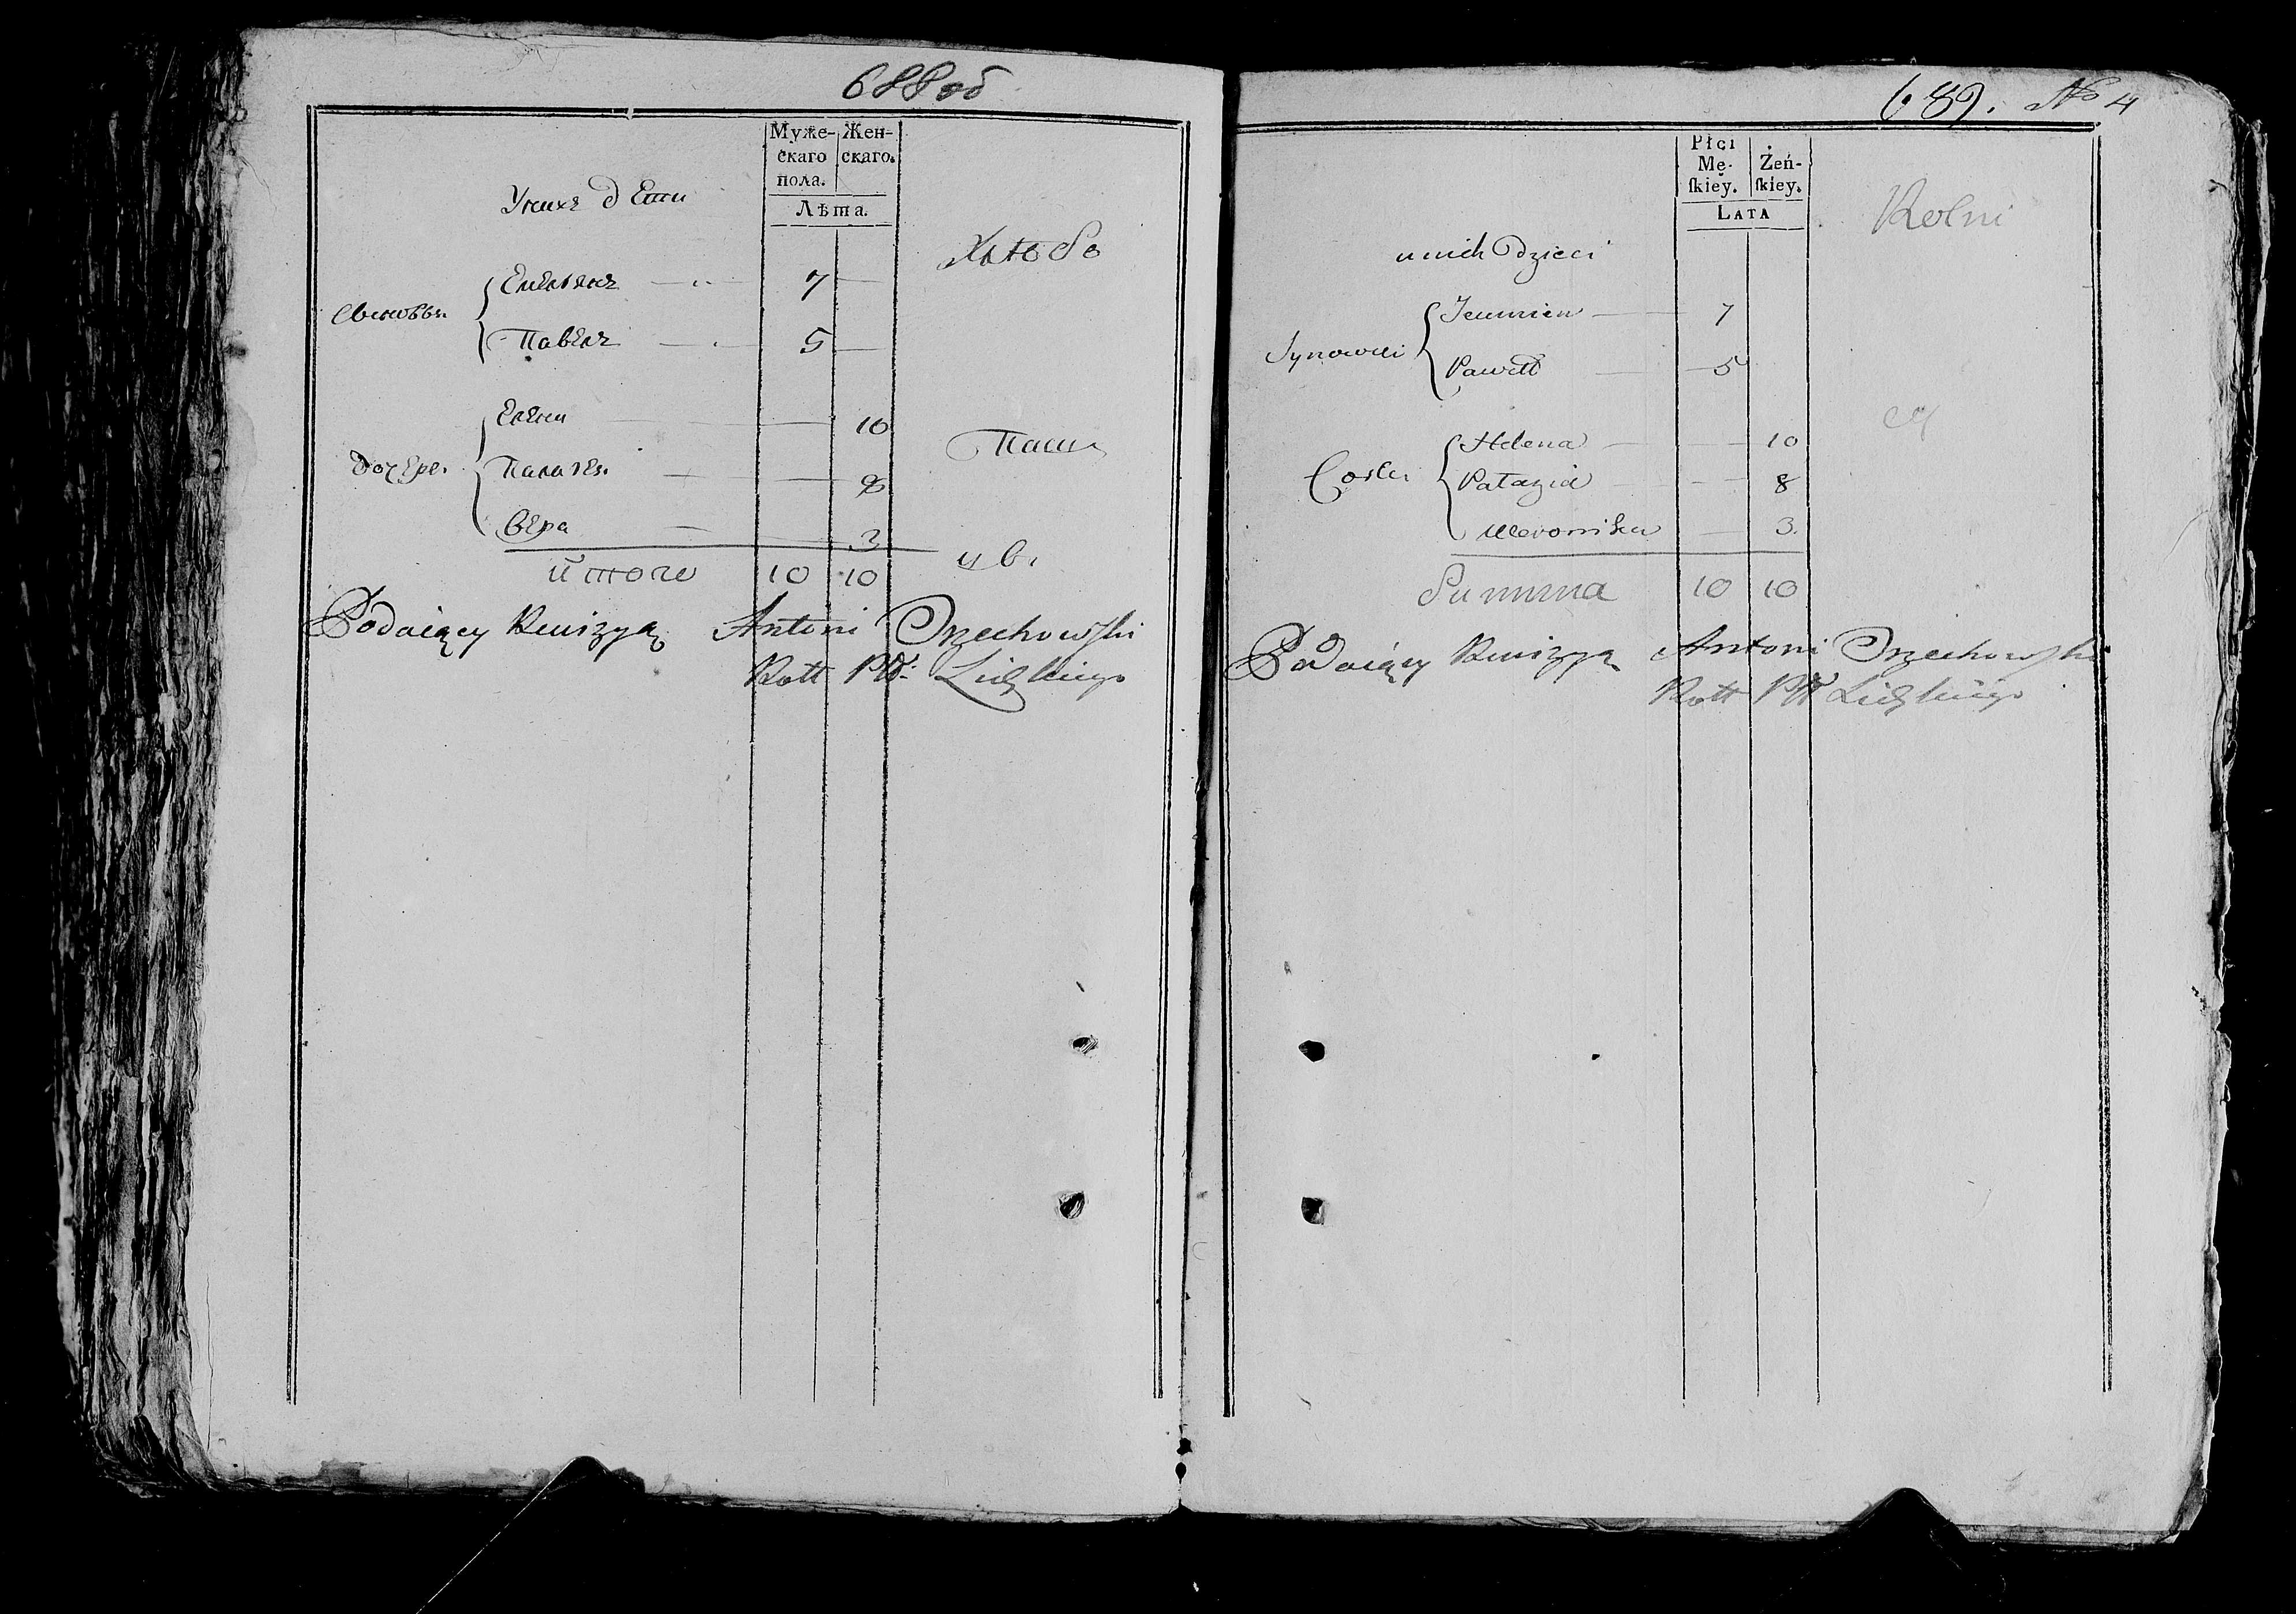 688 об
Муже- Жен-
скаго скаго.
пола.
Лѣта.
Уних дети
Хлѣбо
Сыновья
Емельянъ 7
Павелъ 5
Дочери
Елена 10
Палагея 8
Вера 3
Паш
цы.
Итого 10 10
Podaiący Rewizyą Antoni Orzechowski
Rott Pttu Lidzkiego
689. № 4
Płci
Mę- Żeń-
skiey. skiey.
LATA
Rolni
u nich Dzieci
Synowie
Jeumien 7
Paweł 5
cy
Corki
Helena 10
Pałazia 8
Weronika 3.
Summa 10 10
Podaiący Rewizyą Antoni Orzechowski
Rott Ptt Lidzkiego